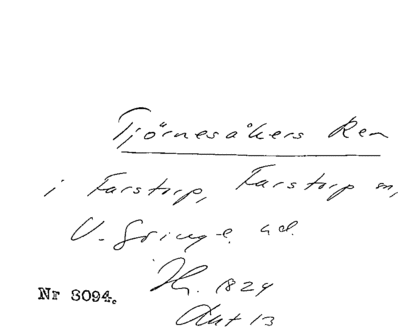 Tjörnesåkers Ren
i Farstorp, Farstorp sn,
V. Göinge hd.
Hr. 1824
Akt 13
Nr 3094.